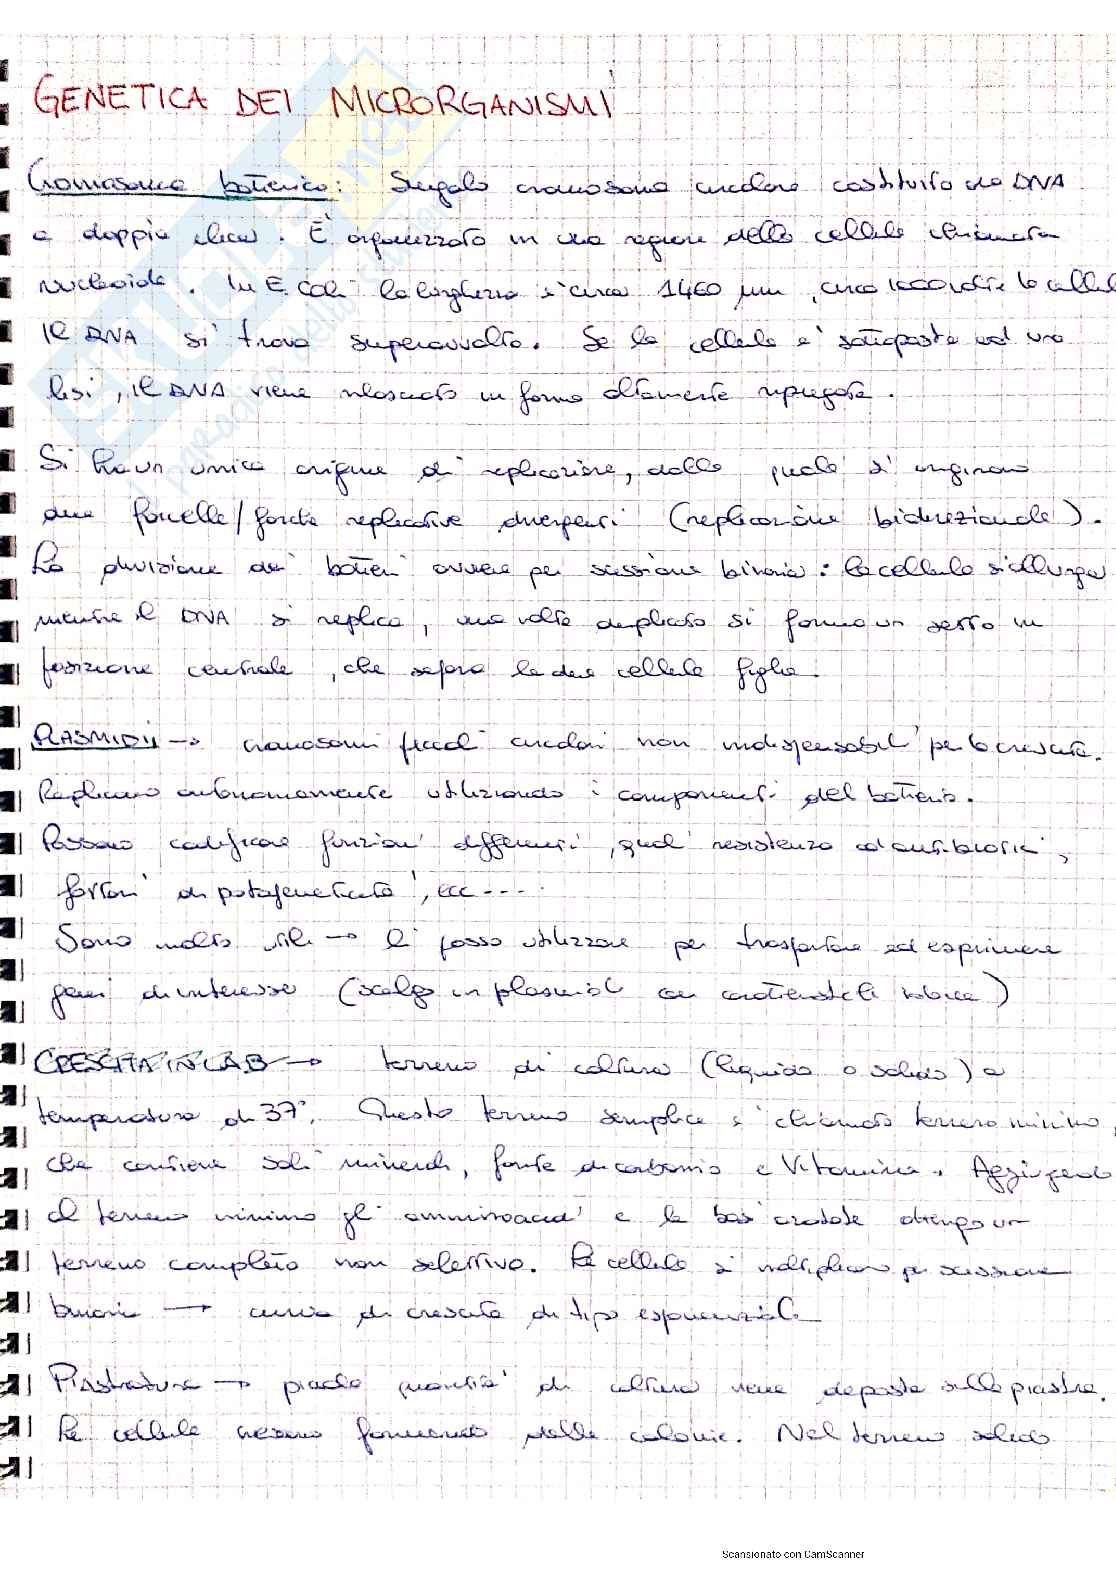 GENETICA DEI MICRORGANISMI
Cromosoma batterico: Singolo cromosoma circolare costituito da DNA
a doppia elica. È organizzato in una regione della cellula chiamata
nucleoide. In E. Coli la lunghezza è circa 1460 µm, circa 1000 volte la cellula
Il DNA si trova superavvolto. Se la cellula è sottoposta ad una
lisi, il DNA viene rilasciato in forma altamente ripiegata.
Si ha un unica origine di replicazione, dalla quale si originano
due forcelle/forche replicative divergenti (replicazione bidirezionale).
La divisione dei batteri avviene per scissione binaria: la cellula si allunga
mentre il DNA si replica, una volta duplicato si forma un setto in
posizione centrale, che separa le due cellule figlie.
PLASMIDI → cromosomi piccoli circolari non indispensabili per la crescita.
Replicano autonomamente utilizzando i componenti del batterio.
Possono codificare funzioni differenti, quali resistenza ad antibiotici,
fattori di patogeneticità, ecc ....
Sono molto utili → li posso utilizzare per trasportare ed esprimere
geni di interesse (scelgo in plasmidi con)
CRESCITA IN LAB → terreno di coltura (liquido o solido) a
temperatura di 37°. Questo terreno semplice è chiamato terreno minimo,
che contiene sali minerali, fonte di carbonio e Vitamina. Aggiungendo
al terreno minimo gli amminoacidi e le basi azotate ottengo un
terreno completo non selettivo. Le cellule si moltiplicano per scissione
binaria → curva di crescita di tipo esponenziale
Piastratura → piccola quantità di coltura viene deposta sulla piastra.
Le cellule crescono formando delle colonie. Nel terreno solido
Scansionato con CamScanner